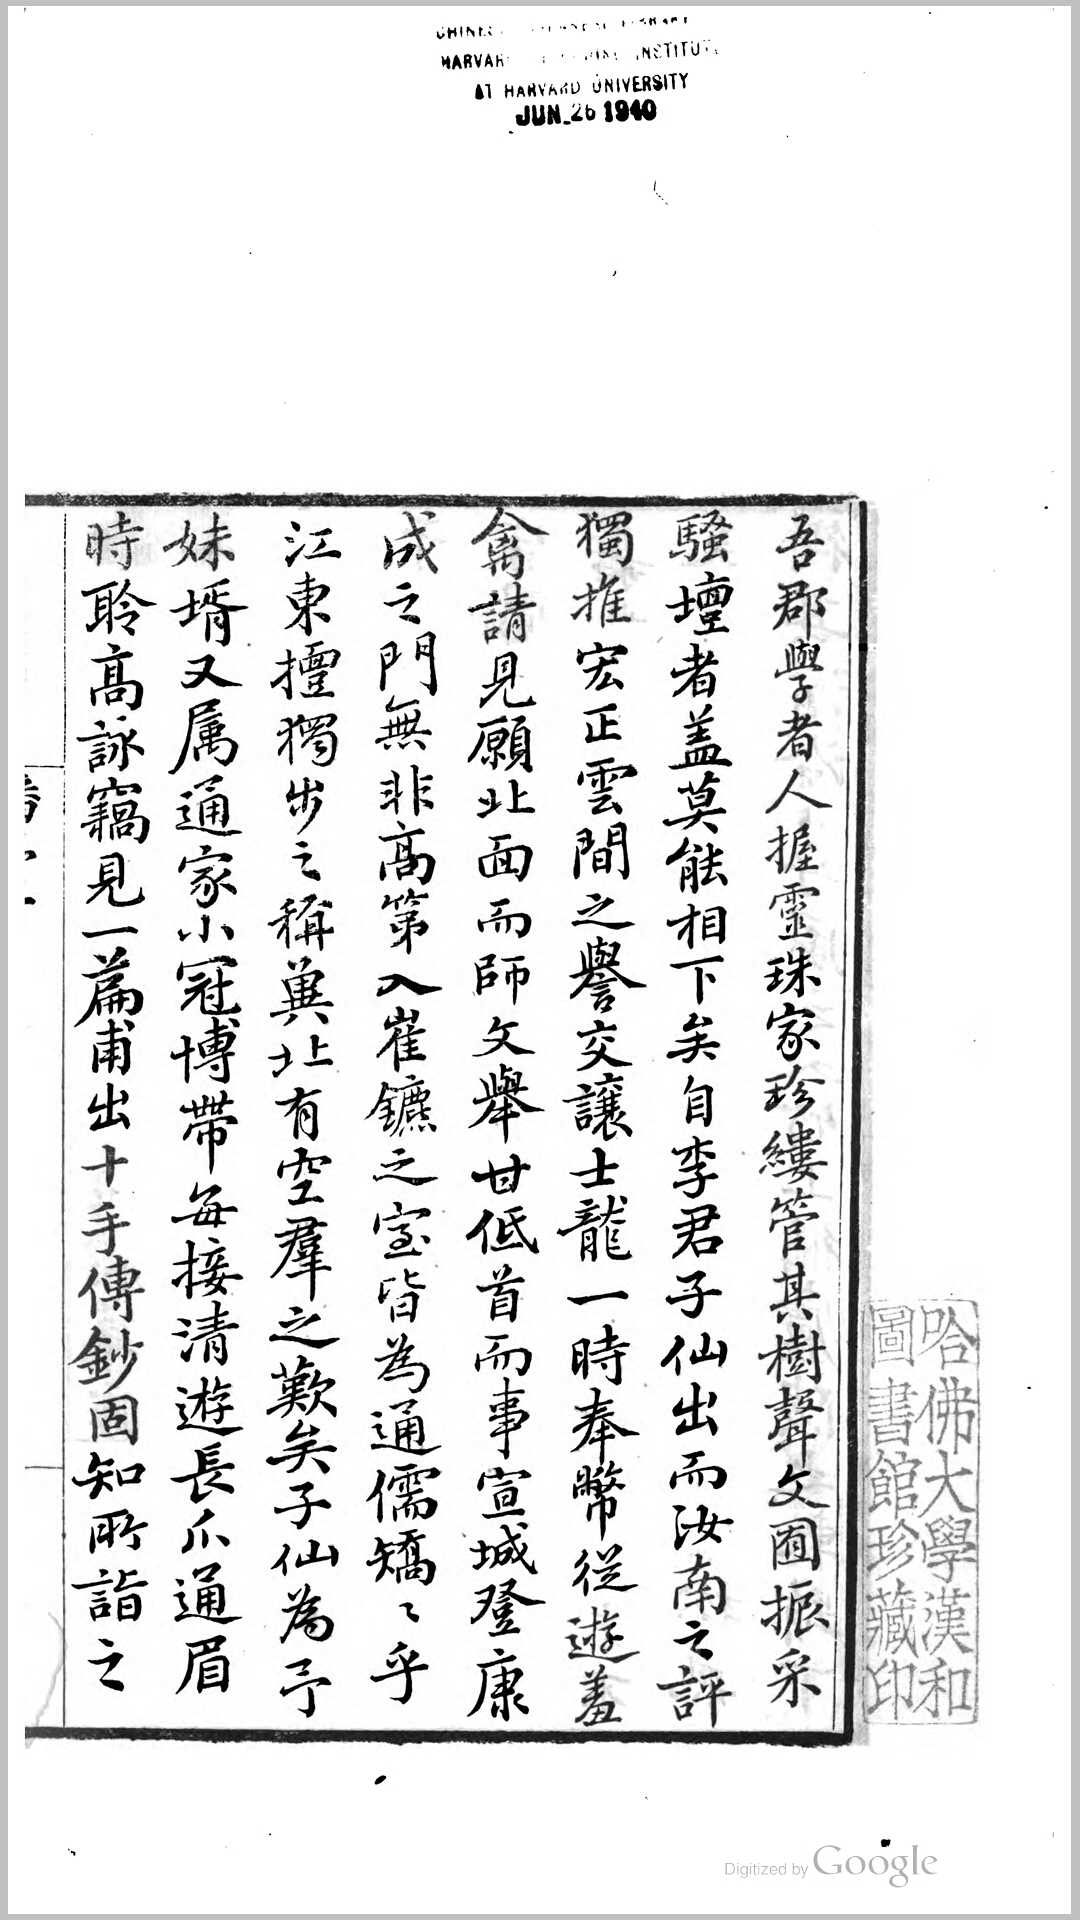 HARVARD
INSTITUTE
AT HARVARD UNIVERSITY
JUN 26 1940
吾郡學者人握靈珠家珍縷管其樹聲文囿振采
騷壇者盖莫能相下矣自李君子仙出而汝南之評
獨推宏正雲間之譽交讓士龍一時奉幣從遊羔
禽請見願北面而師文舉甘低首而事宣城登康
成之門無非高第入崔鑣之室皆為通儒矯〻乎
江東擅獨步之稱冀北有空羣之歎矣子仙為予
妹壻又属通家小冠博帶每接清遊長爪通眉
時聆高詠竊見一篇甫出十手傳鈔固知所詣之
哈佛大學漢和
圖書館珍藏印
Digitized by Google